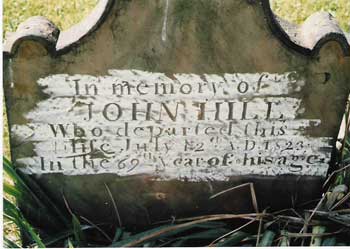 In memory of
JOHN HILL
Who departed this
Life July A.D. 1823
In the 69th Year of his age